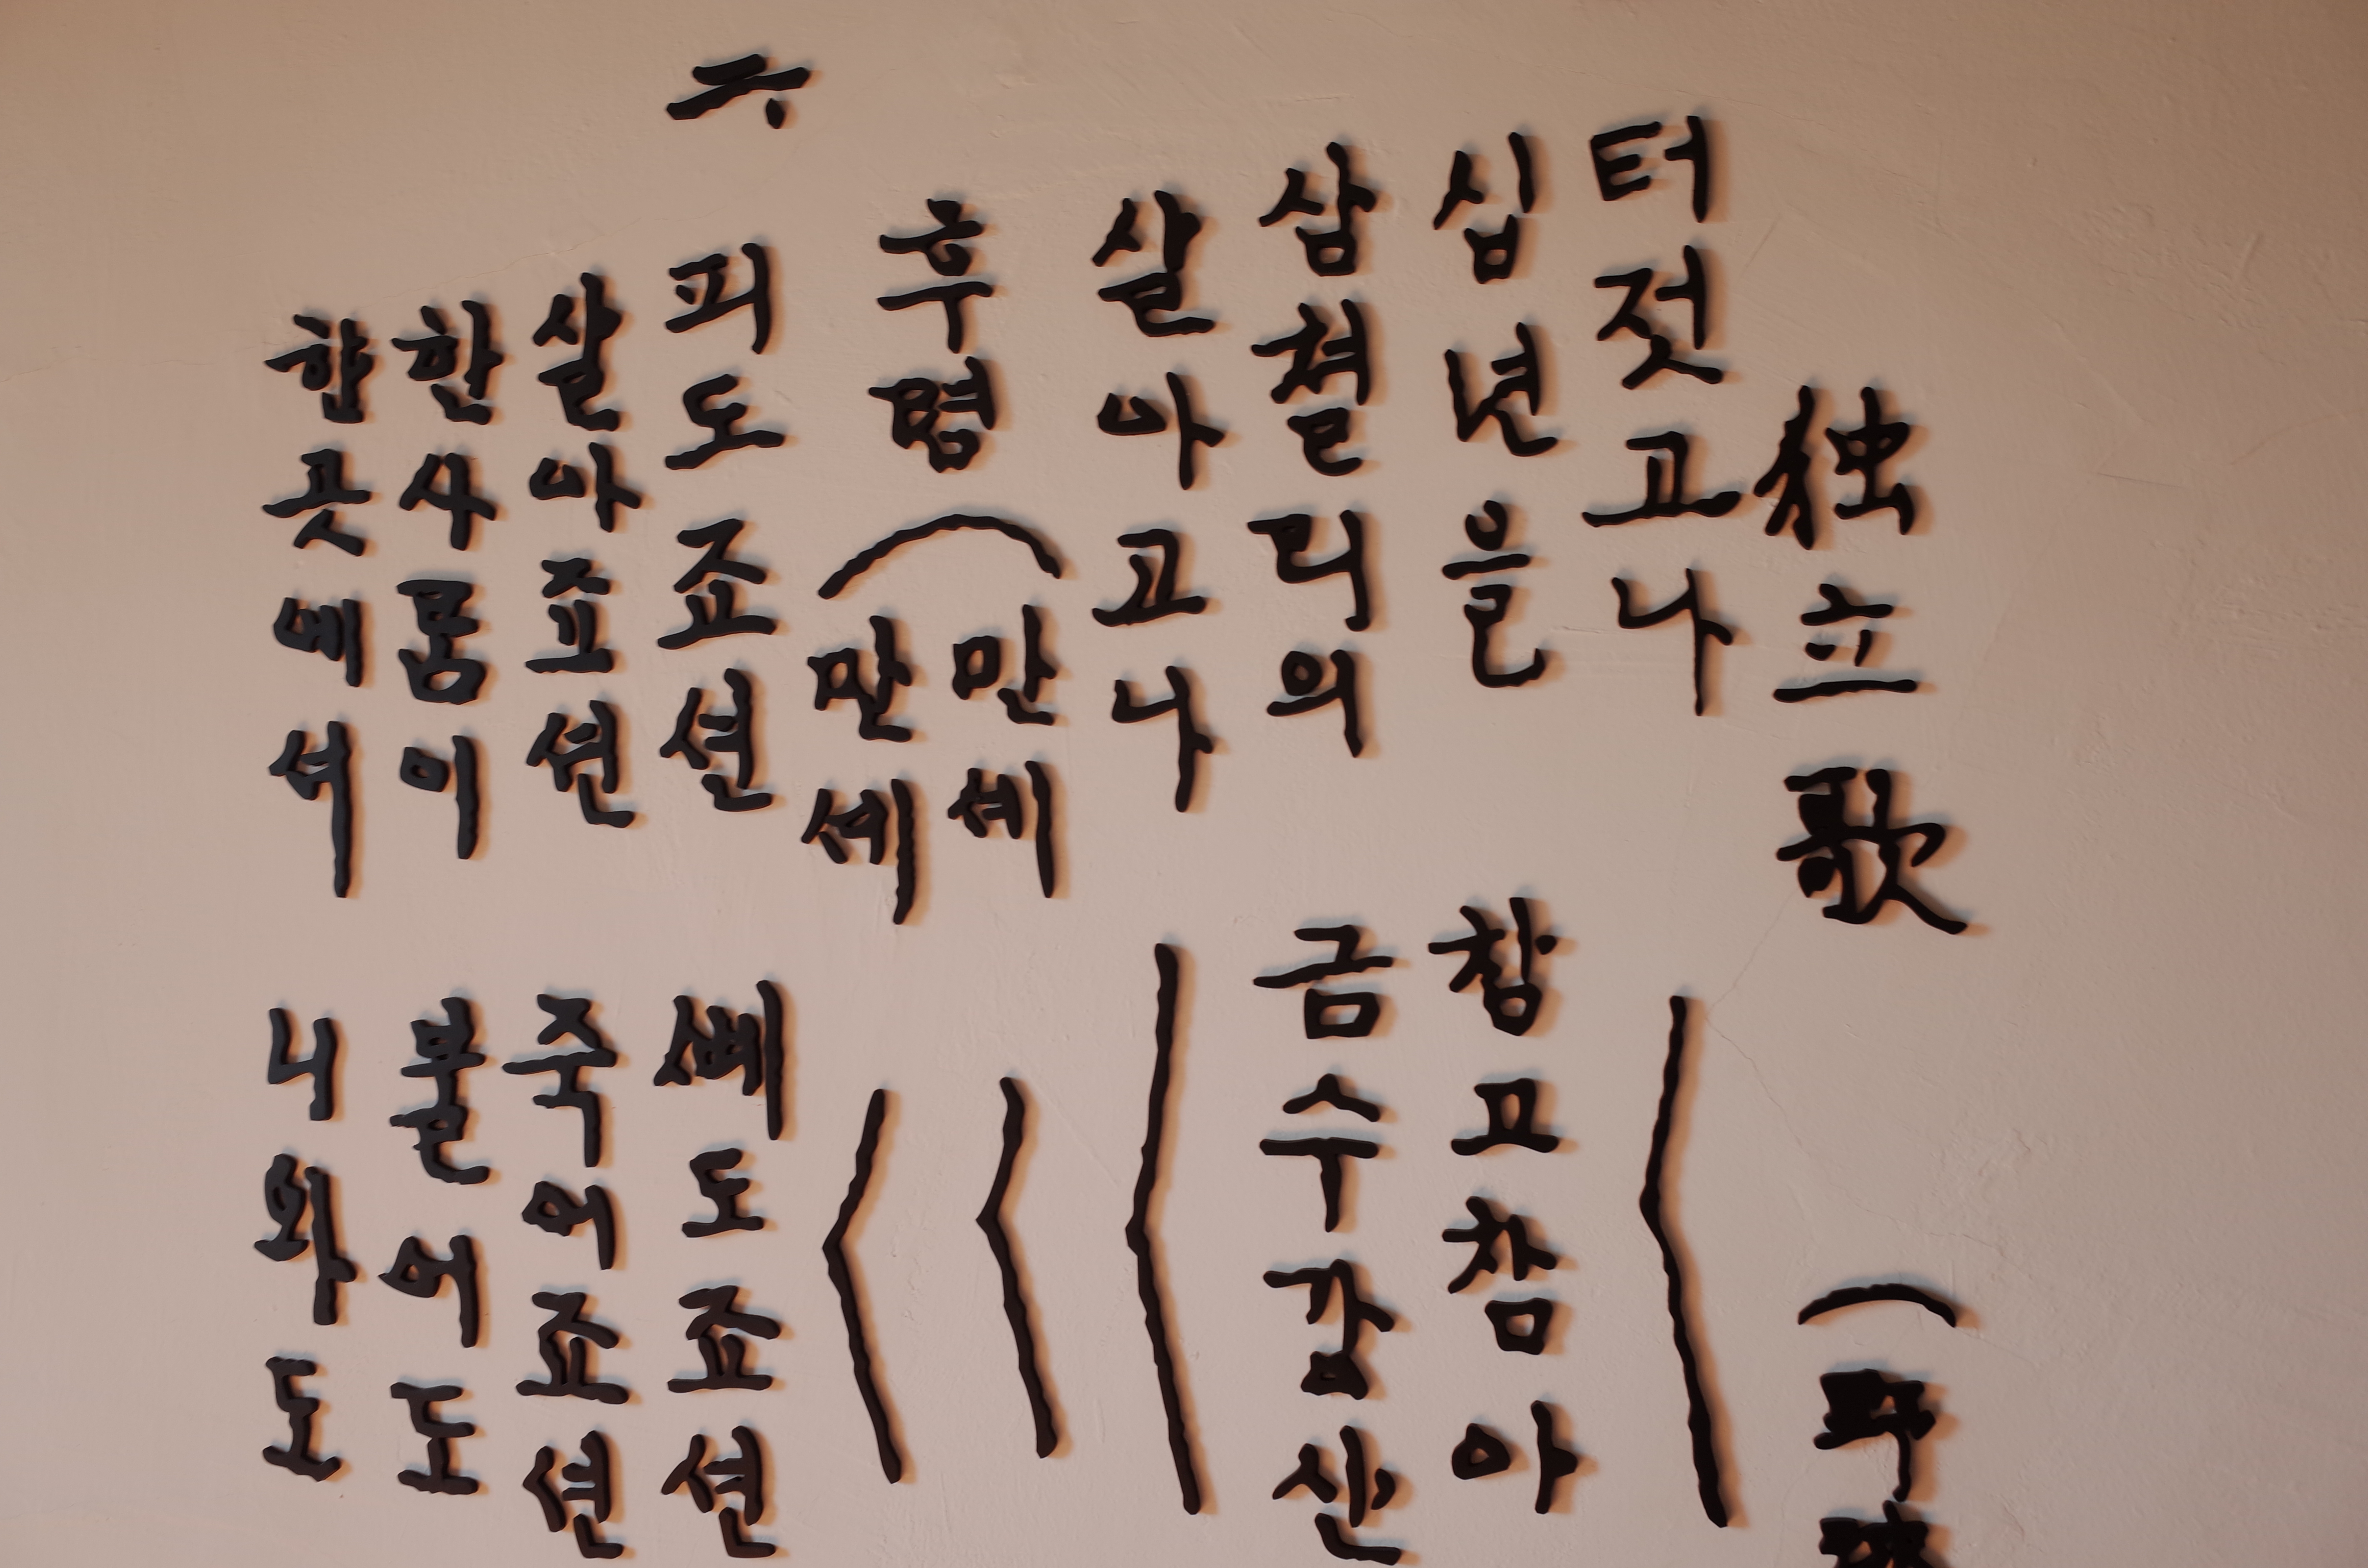 独立歌 (
터젓고나 〱
십년을 참고참아
삼쳔리의 금수강산
살아고나 〱
후렴 (만세 〱
만세 〱
피도죠션 뼈도죠션
살아죠션 죽의죠션
한사룸이
한곳테셔